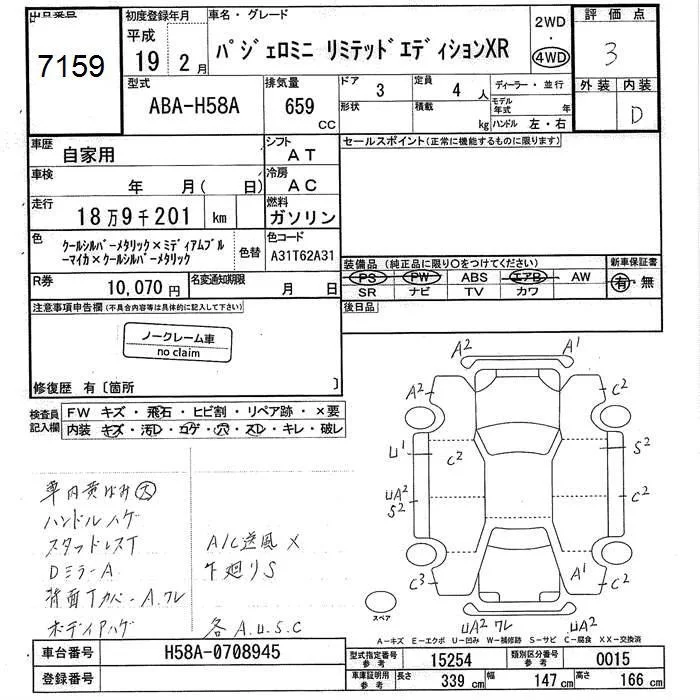 出品番号
7159
初度登録年月
平成
19 2月
車名・グレード
パジェロミニ リミテッドエディションXR
2WD
・
4WD
評価点
3
外装 内装
D
型式
ABA-H58A
排気量
659
CC
ドア
3
形状
定員
4 人
積載
kg
ディーラー・並行
モデル
年式 年
ハンドル 左・右
車歴
自家用
シフト
AT
車検
年 月( 日)
冷房
AC
走行
18万9千201 km
燃料
ガソリン
色
クールシルバーメタリック×ミディアムブル
ーマイカ×クールシルバーメタリック
色替
色コード
A31T62A31
R券
10,070円
名変通知期限
月 日
セールスポイント(正常に機能するものに限ります)
装備品(純正品に限り○をつけてください)
PS PW ABS エアB AW
SR ナビ TV カワ
新車保証書
有・無
後日品
注意事項申告欄(不具合内容等は具体的に記入して下さい)
ノークレーム車
no claim
修復歴 有〔箇所 〕
検査員
記入欄
FW キズ・飛石・ヒビ割・リペア跡・×要
内装 キズ・汚レ・コゲ・穴・スレ・キレ・破レ
車内黄ばみ大
ハンドルハゲ
スタッドレスT
DミラーA
背面Tカバー A.ワレ
ボディアハゲ
A/C送風×
下廻りS
各A.U.S.C
A2 A1
A2 C2
U1 C2 S2
UA2 C2
S2
C3 A1 C2
UA2 ワレ UA2
スペア
A-キズ E-エクボ U-凹み W-補修跡 S-サビ C-腐食 XX-交換済
車台番号
H58A-0708945
登録番号
型式指定番号
参考
15254
類別区分番号
参考
0015
車庫証明用
参考
長さ 339 cm 幅 147 cm 高さ 166 cm